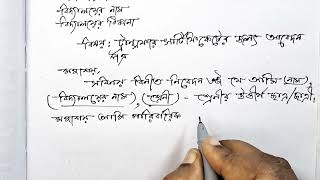 -বিদ্যালয়ের নাম
-বিদ্যালয়ের ঠিকানা
-বিষয়: ট্রান্সফার সার্টিফিকেটের জন্য আবেদন
পত্র
মহাশয়,
সবিনয় বিনীত নিবেদন এই যে আমি (নাম),
(বিদ্যালয়ের নাম), (শ্রেণী) - শ্রেণীর উত্তীর্ণ ছাত্র/ছাত্রী।
মহাশয় আমি পারিবারিক